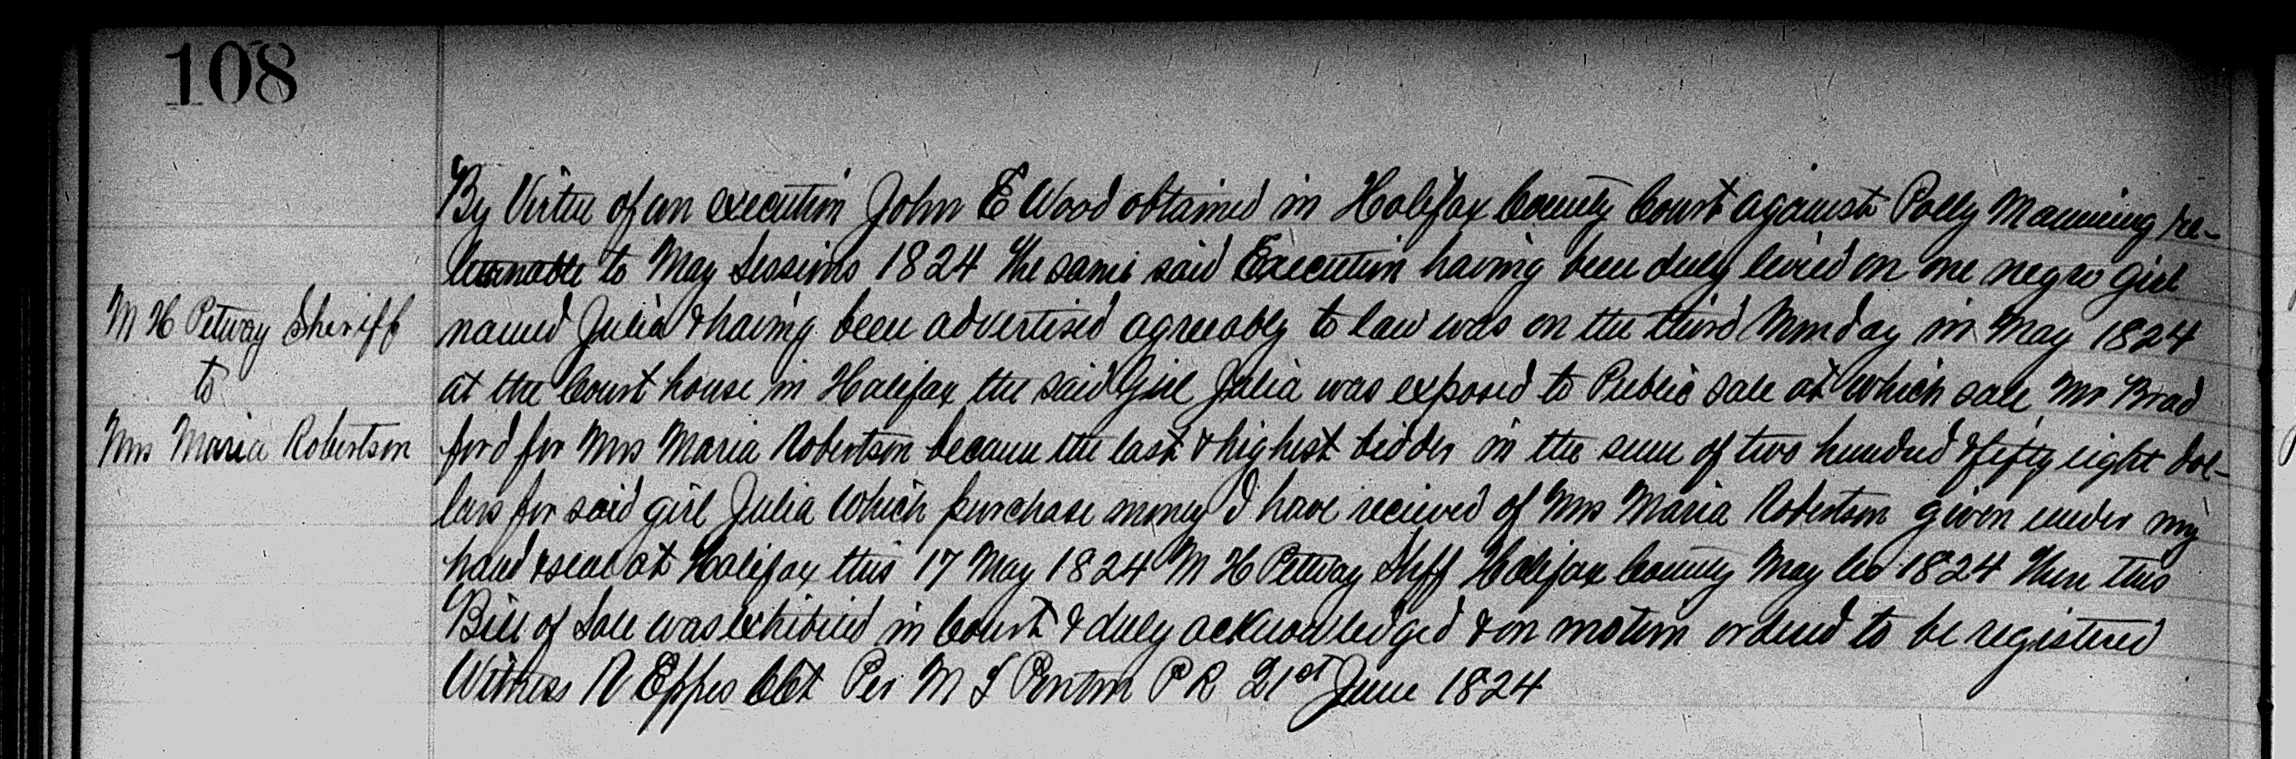 108
By Virtue of an execution John E Wood obtained in Halifax County Court against Polly Manning re-
turnable to May Sessions 1824 the same said Execution having been duly levied on one negro girl
M H Petway Sheriff
to
Mrs Maria Robertson
named Julia & having been advertised agreeably to law was on the third Monday in May 1824
at the Court house in Halifax the said Girl Julia was exposed to Public sale at which sale Mr Brad
ford for Mrs Maria Robertson became the last & highest bidder in the sum of two hundred & fifty eight dol-
lars for said girl Julia Which purchase money I have recieved of Mrs Maria Robertson given under my
hand & seal at Halifax this 17 May 1824 M H Pettway Shff Halifax County May 1824 Then this
Bill of Sale was exhibited in Court & duly acknowledged & on motion ordered to be registered
Witness R Eppes Clk Per M S Ponton P R 21st June 1824